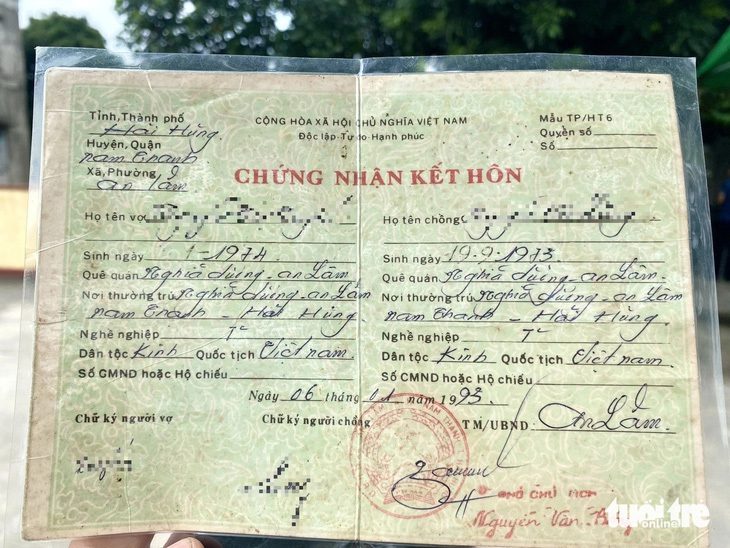 Tỉnh, Thành phố Hải Hưng
CỘNG HÒA XÃ HỘI CHỦ NGHĨA VIỆT NAM
Độc lập-Tự do-Hạnh phúc
Mẫu TP/HT6
Quyển số
Số
Huyện, Quận
nam Thanh
Xã, Phường
an Lâm
CHỨNG NHẬN KẾT HÔN
Họ tên vợ
Họ tên chồng
Sinh ngày 1-1974
Sinh ngày 19-9-1973
Quê quán Nghĩa dương-an Lâm
Quê quán Nghĩa dương-an Lâm
Nơi thường trú Nghĩa dương-an Lâm
nam Thanh - Hải Hưng
Nơi thường trú Nghĩa dương-an Lâm
nam Thanh - Hải Hưng
Nghề nghiệp
Nghề nghiệp
Dân tộc Kinh Quốc tịch Việt nam
Dân tộc Kinh Quốc tịch Việt nam
Số CMND hoặc Hộ chiếu
Số CMND hoặc Hộ chiếu
Ngày 06 tháng 01 năm 1993
Chữ ký người vợ
Chữ ký người chồng
TM/UBND an Lâm
NAM THANH
Nguyễn Văn
tuổi trẻ
online